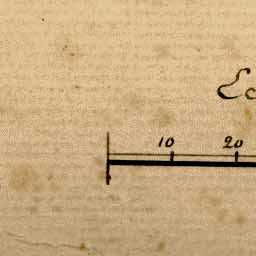 Ec
10 20